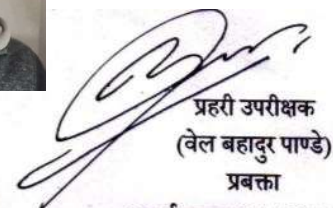 प्रहरी उपरीक्षक
(वेल बहादुर पाण्डे)
प्रबक्ता